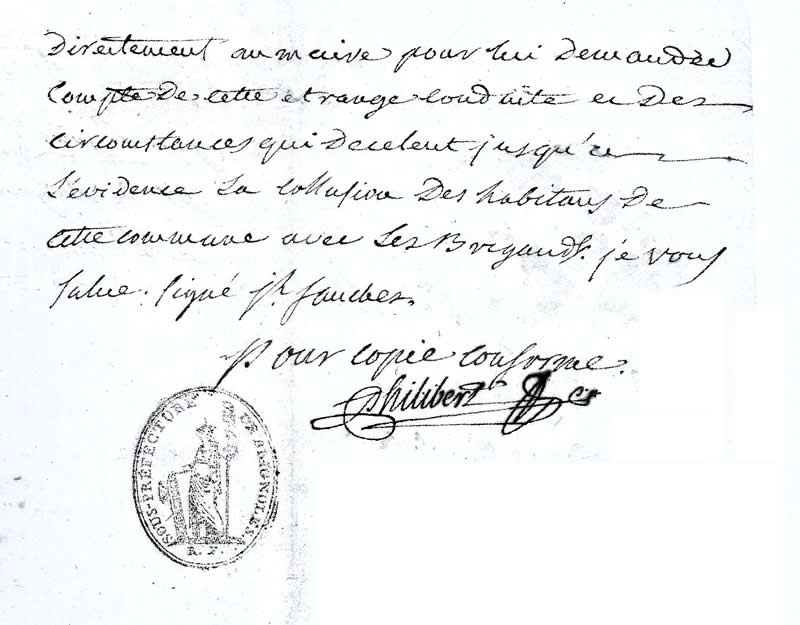 Directement au maire pour lui Demander
Compte De cette etrange Conduite et Des
circonstances qui decelent jusqu'a
L'évidence La collusion Des habitans De
cette commune avec Les Brigands. je vous
salue. signé jh. fauchet.
Pour copie conforme.
Philibert
SOUS-PRÉFECTURE DE BRIGNOLES
R. F.